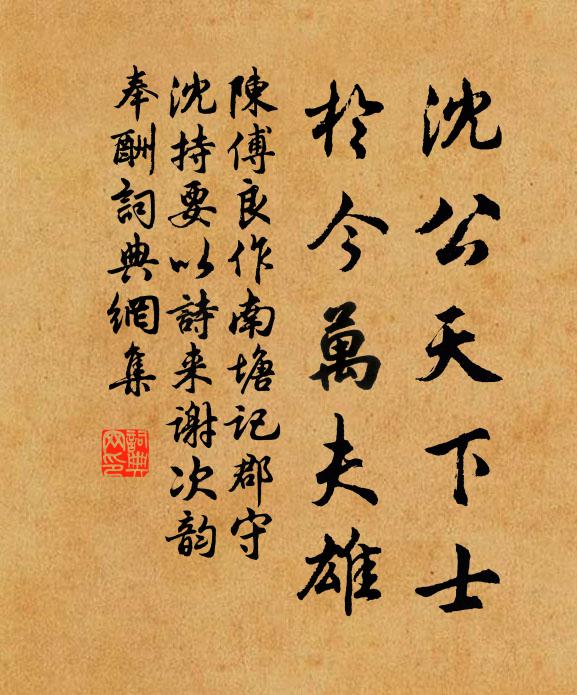 沈公天下士
於今萬夫雄
陳傅良作南塘記郡守
沈持要以詩来謝次韵
奉酬詞典網集
詞典网印